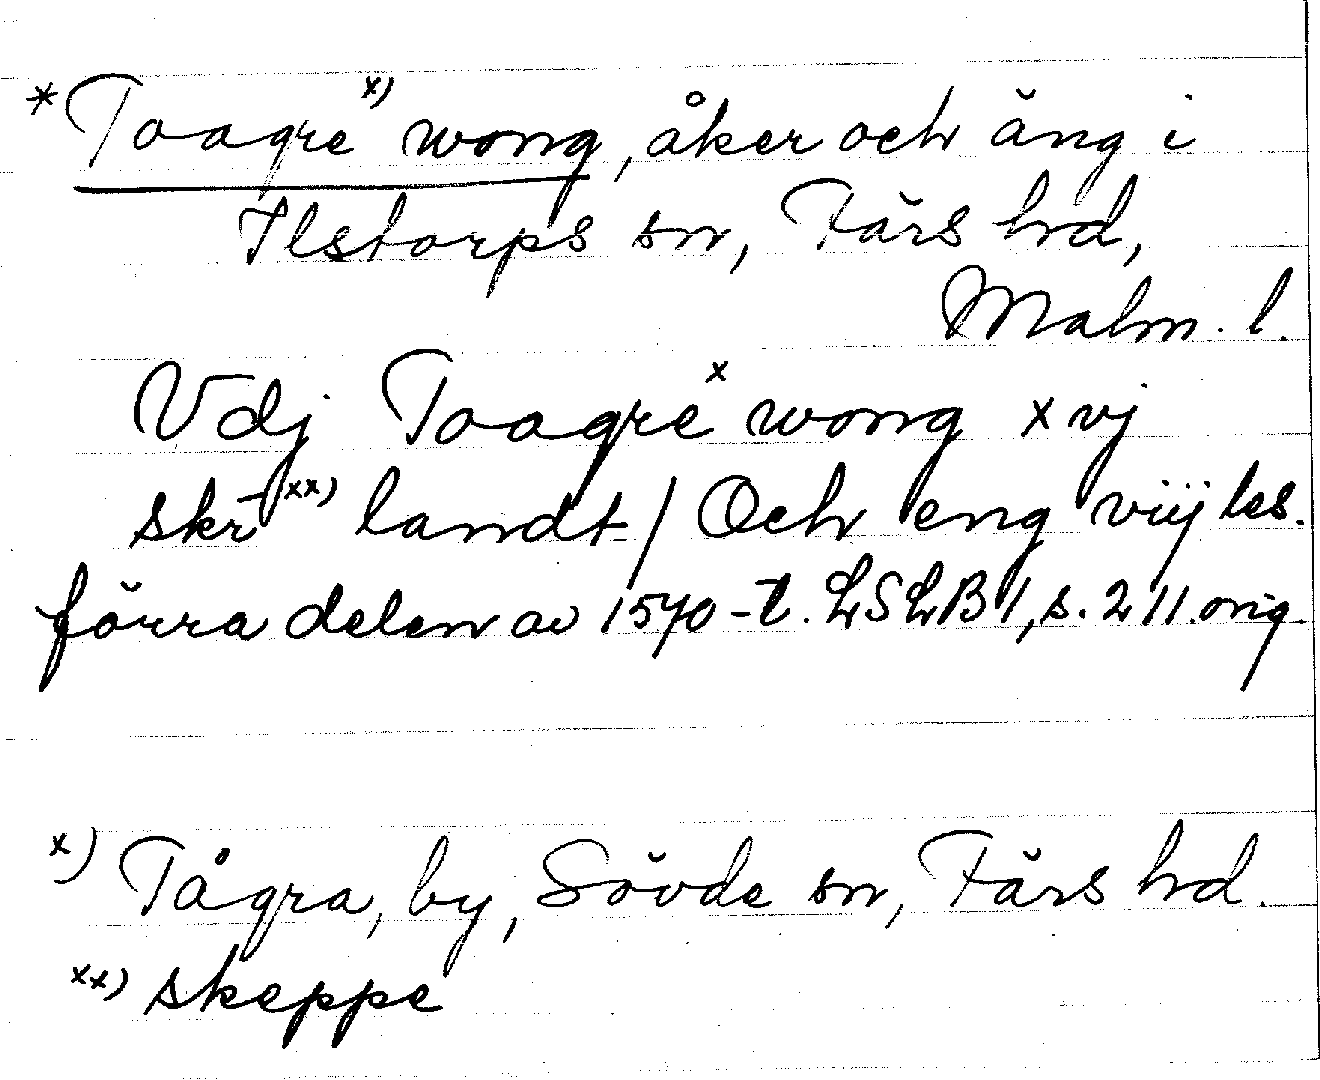 * Toagre x) wong, åker och äng i
Ilstorps sn, Färs hd,
Malm. l.
Vdj Toagre x wong xvj
skr̄ xx) landt / Och eng viij les.
förra delen av 1570-t. LSLB 1, s. 211. orig.
x) Tågra, by, Sövde sn, Färs hd.
xx) skeppe